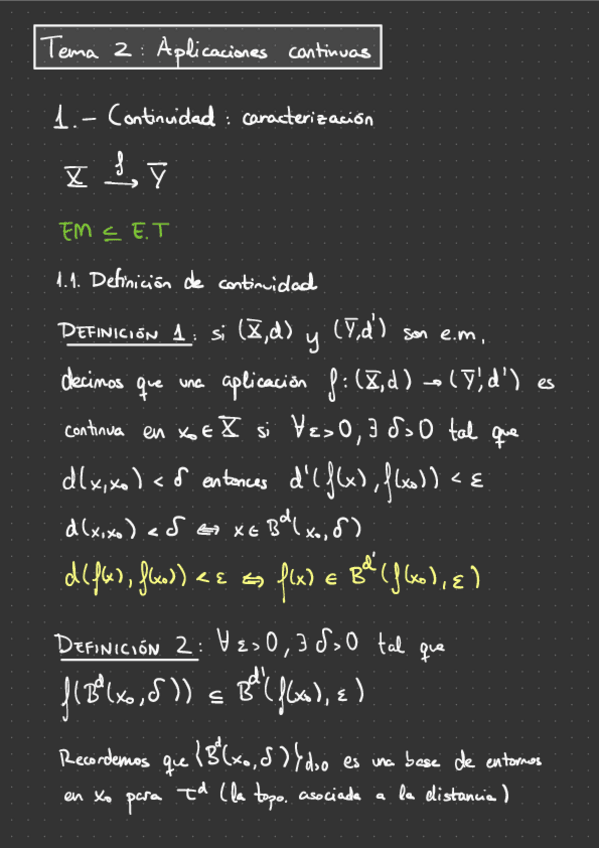 Tema 2: Aplicaciones continuas
1.- Continuidad: caracterización
X f→ Y
EM ⊆ E.T
1.1. Definición de continuidad
DEFINICIÓN 1: si (X,d) y (Y,d') son e.m,
decimos que una aplicación f:(X,d) → (Y',d') es
continua en x₀ ∈ X si ∀ε>0, ∃ δ>0 tal que
d(x,x₀) < δ entonces d'(f(x), f(x₀)) < ε
d(x,x₀) < δ ⇔ x ∈ Bᵈ(x₀,δ)
d(f(x), f(x₀)) < ε ⇔ f(x) ∈ Bᵈ'(f(x₀), ε)
DEFINICIÓN 2: ∀ε>0, ∃ δ>0 tal que
f(Bᵈ(x₀,δ)) ⊆ Bᵈ'(f(x₀), ε)
Recordemos que {Bᵈ(x₀,δ)}d>0 es una base de entornos
en x₀ para τᵈ (la topo. asociada a la distancia)